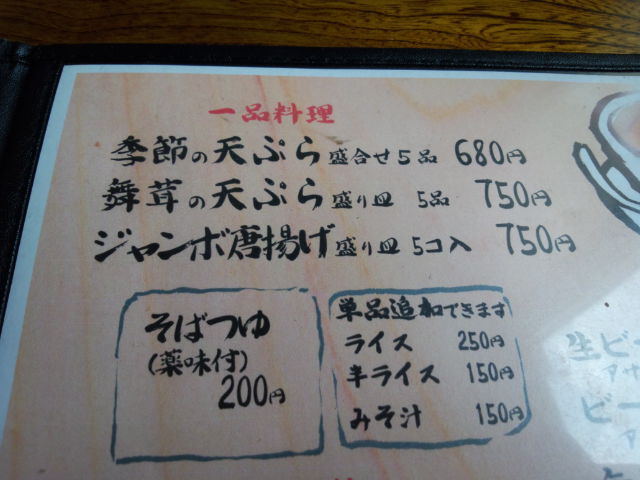 一品料理
季節の天ぷら盛合せ5品 680円
舞茸の天ぷら盛り皿 5品 750円
ジャンボ唐揚げ盛り皿 5コ入 750円
そばつゆ
(薬味付)
200円
単品追加できます
ライス 250円
半ライス 150円
みそ汁 150円
生ビー
アサ
ビー